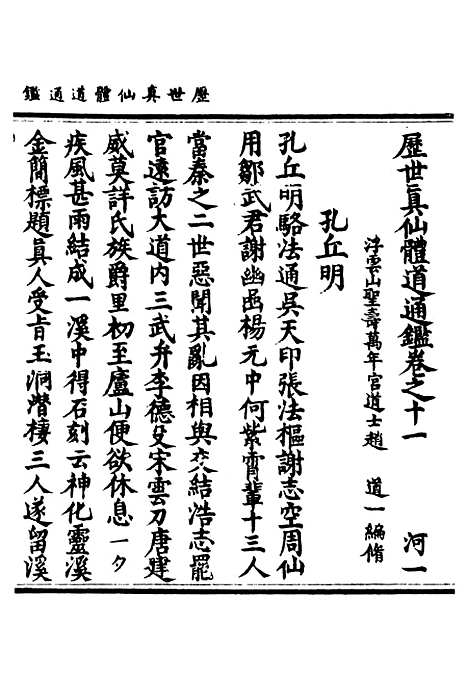 歷世真仙體道通鑑
歷世真仙體道通鑑卷之十一　河一
浮雲山聖壽萬年宮道士趙　道一編脩
孔丘明
孔丘明駱法通吳天印張法樞謝志空周仙
用鄒武君謝幽嵒楊元中何紫霄輩十三人
當秦之二世惡聞其亂因相與交結浩志罷
官遠訪大道內三武弁李德殳宋雲刀唐建
威莫詳氏族爵里初至廬山便欲休息一夕
疾風甚雨結成一溪中得石刻云神化靈溪
金簡標題真人受旨玉洞潛棲三人遂留溪